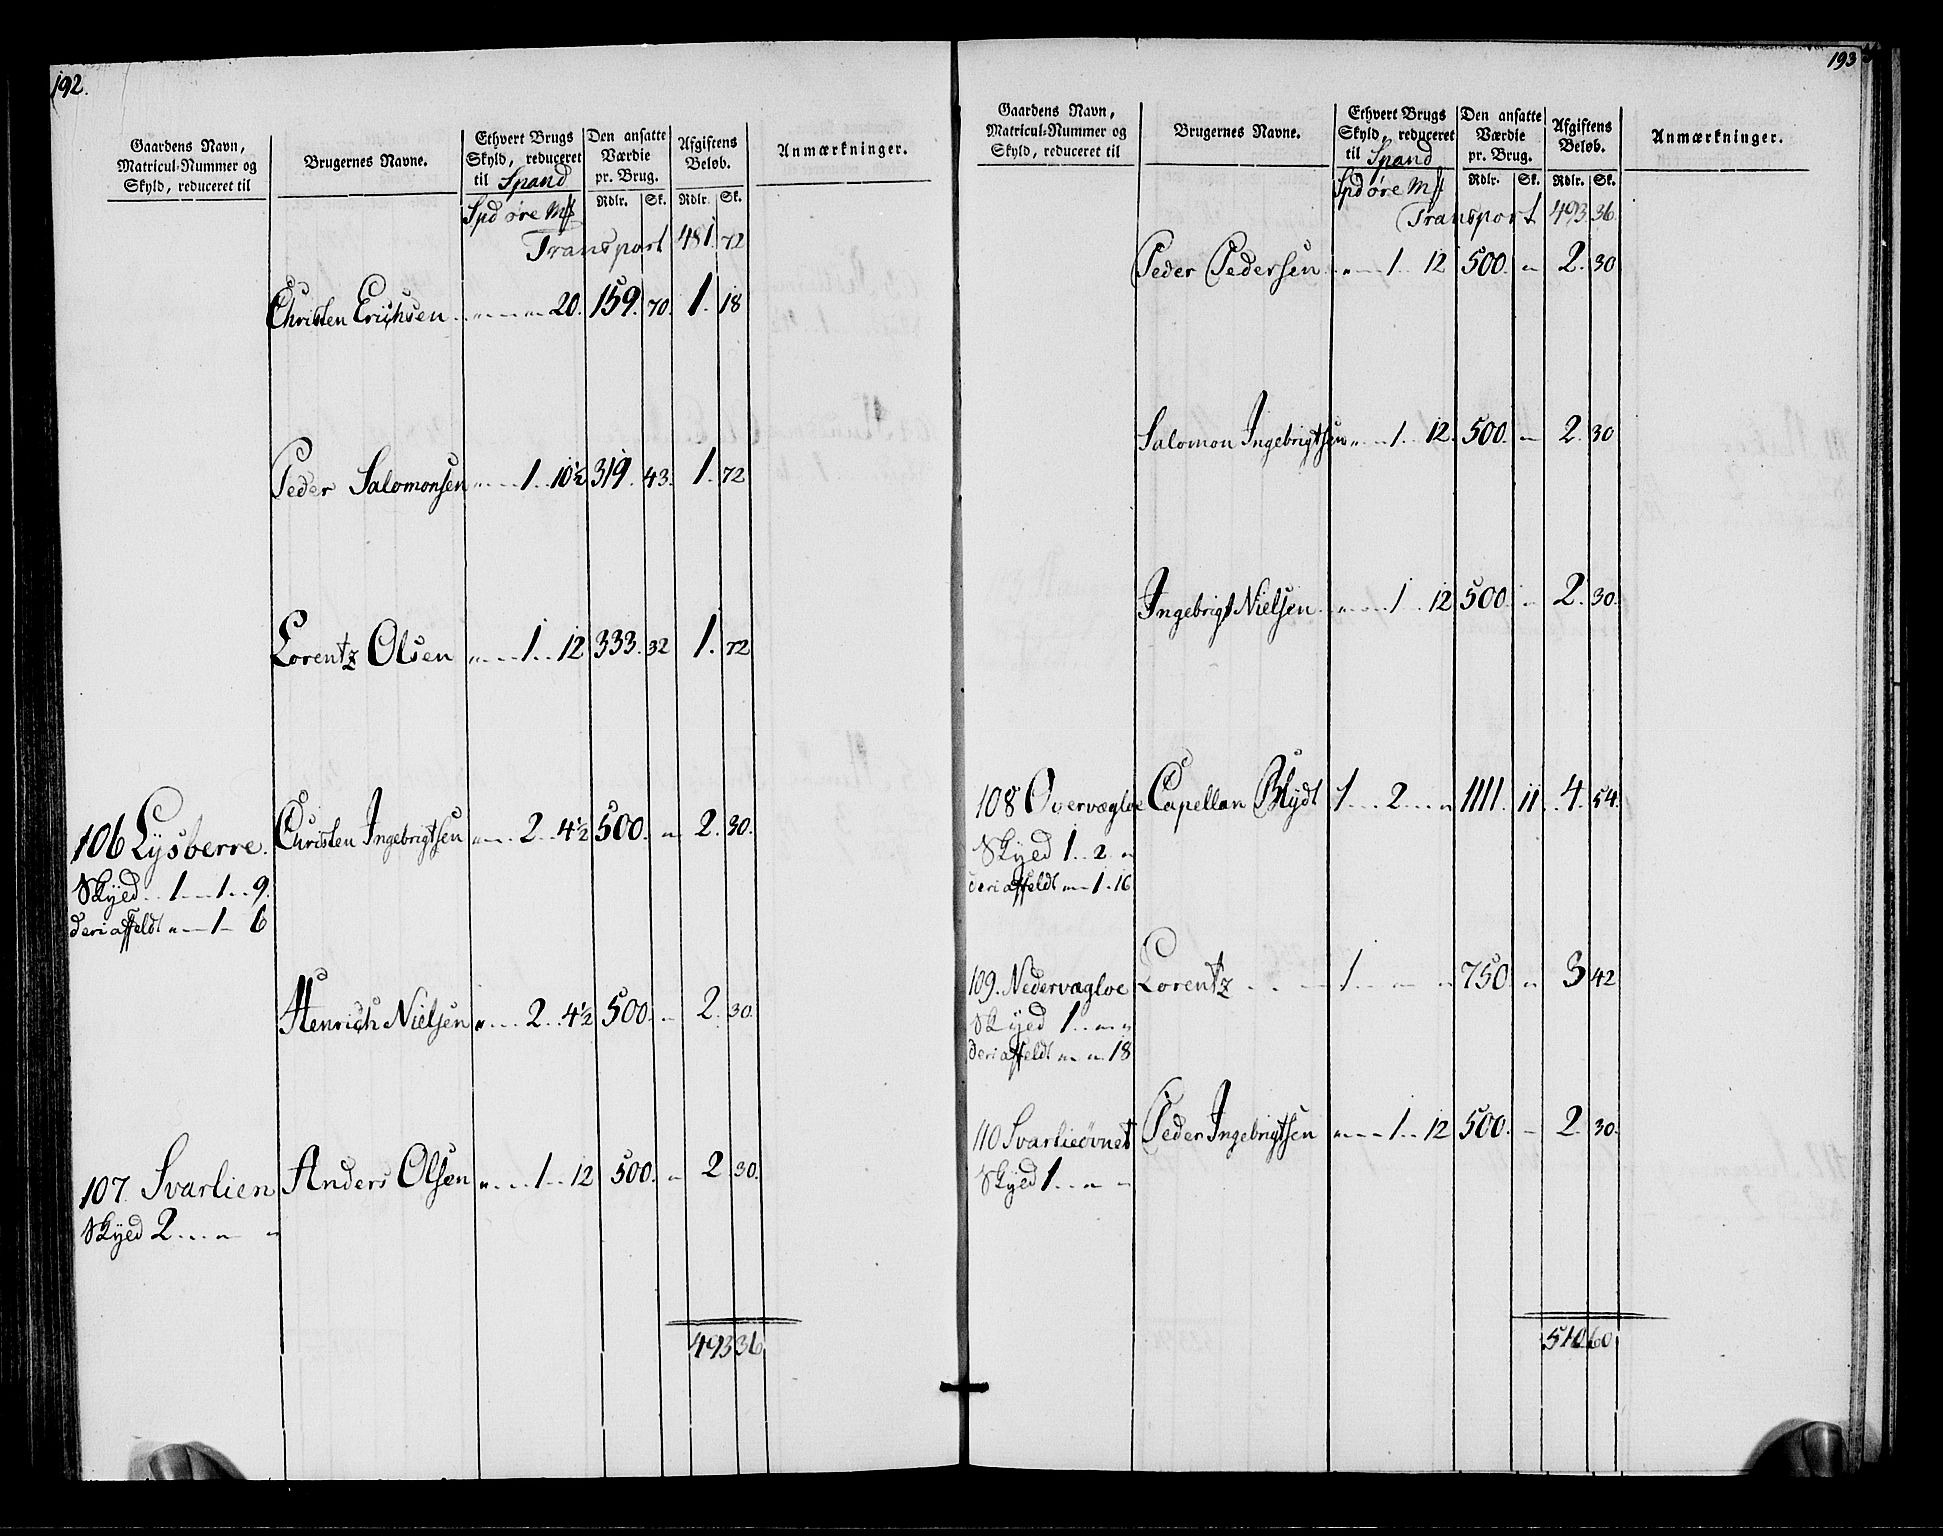 192.
Gaardens Navn, Matricul-Nummer og Skyld, reduceret til
Brugernes Navne.
Ethvert Brugs Skyld, reduceret til Spand
Den ansatte Værdie pr. Brug.
Afgiftens Beløb.
Anmærkninger.
Spd øre Mk
Rdlr. Sk. Rdlr. Sk.
Transport 481. 72
Christen Erichsen „ „ 20. 159. 70. 1. 18
Peder Salomonsen „ 1 10½ 319. 43. 1. 72
Lorentz Olsen „ 1 12 333. 32 1. 72
106 Lysberre. Christen Ingebrigtsen „ 2 4½ 500. „ 2. 30.
Skyed 1 1 9.
deri affeldt „ 1 6
Henrich Nielsen „ 2 4½ 500. „ 2. 30.
107 Svarlien Anders Olsen „ 1 12 500. „ 2 30.
Skyed 2 „ „
493 36
193
Gaardens Navn, Matricul-Nummer og Skyld, reduceret til
Brugernes Navne.
Ethvert Brugs Skyld, reduceret til Spand
Den ansatte Værdie pr. Brug.
Afgiftens Beløb.
Anmærkninger.
Spd øre Mk
Rdlr. Sk. Rdlr. Sk.
Transport 493. 36.
Peder Pedersen „ 1 12 500. „ 2. 30
Salomon Ingebrigtsen „ 1 12. 500. „ 2. 30
Ingebrigt Nielsen „ 1 12 500. „ 2. 30.
108 Overvægloe Capellan Blydt 1 2 „ 1111. 11 4. 54.
Skyed 1 2 „
deri affeldt „ 1 16
109. Nedervægloe Lorentz 1 „ „ 750. „ 3 42
Skyed 1 „ „
deri affeldt „ „ 18
110 Svarlieøvnet Peder Ingebrigtsen „ 1 12 500. „ 2. 30.
Skyed 1 „ „
510 60